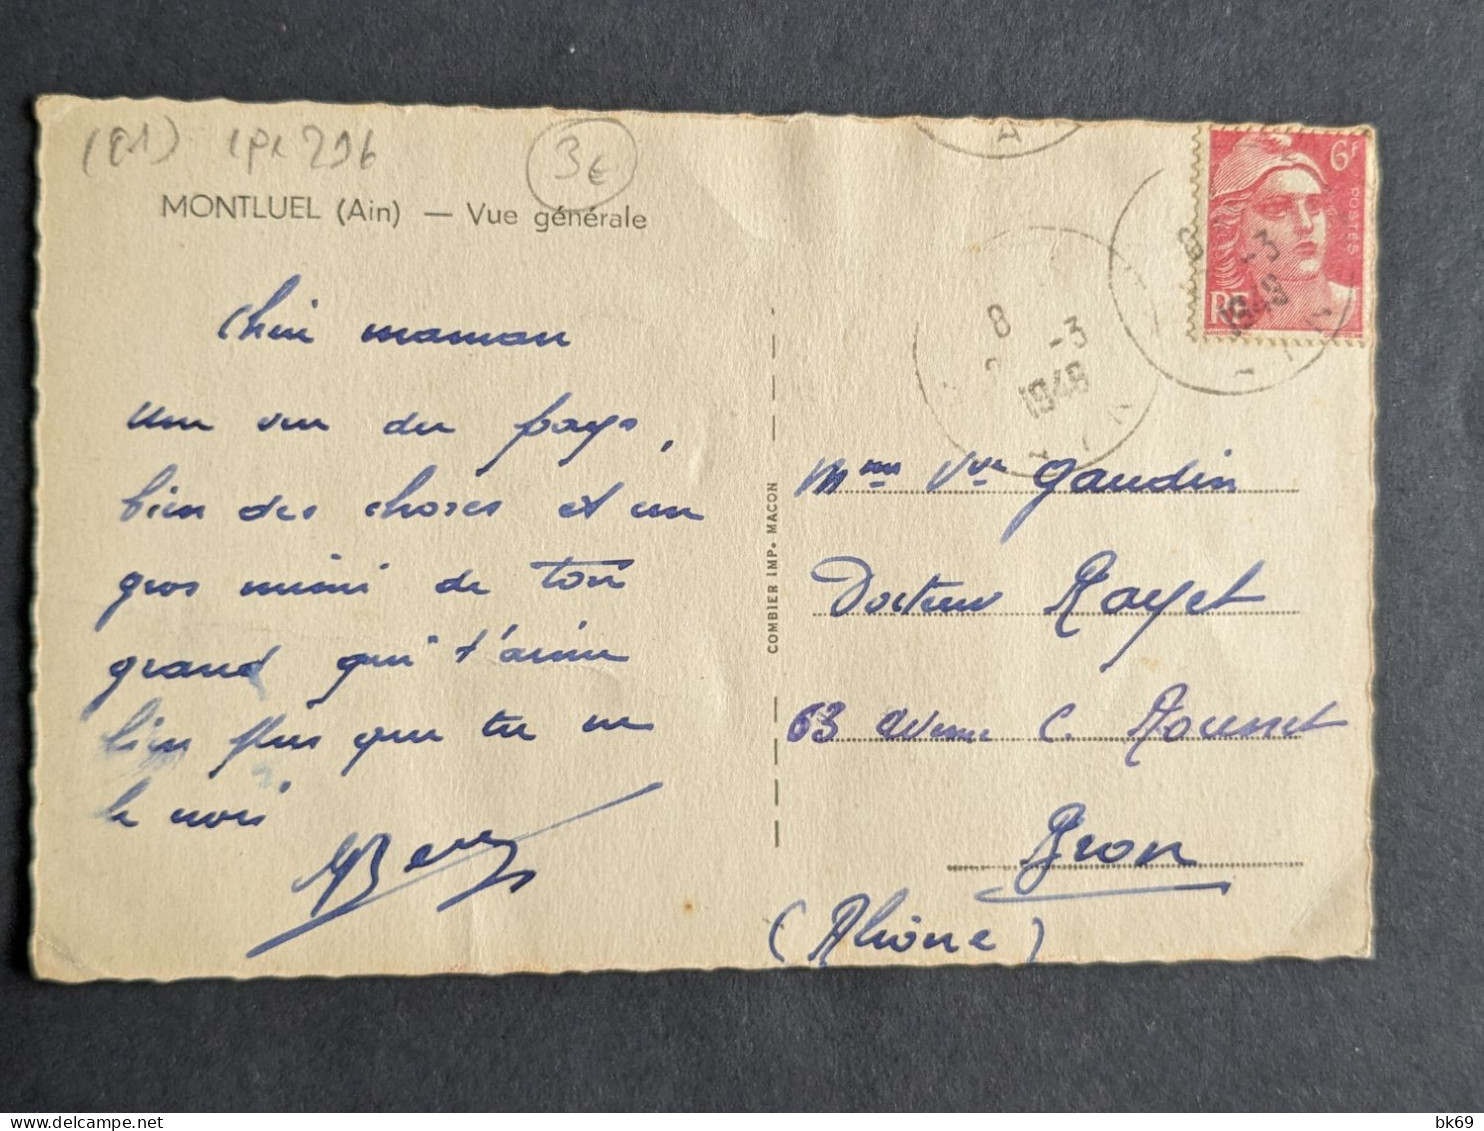 (01) CPL 296
3€
MONTLUEL (Ain) — Vue générale
chère maman
une vue du pays,
bien des choses et un
gros mimi de ton
grand qui t'aime
bien plus que tu ne
le crois
COMBIER IMP. MACON
6F
POSTES
RF
8
-3
1948
-3
1948
AIN
Mme Vve Gaudin
Docteur Rayet
63 Avenue C. Rousset
Bron
(Rhône)
bk69